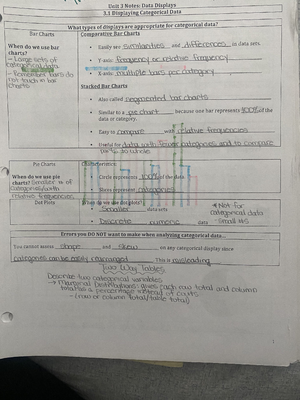 Unit 3 Notes: Data Displays
3.1 Displaying Categorical Data
What types of displays are appropriate for categorical data?
Bar Charts
Comparative Bar Charts
When do we use bar charts?
- Large sets of categorical data
- Remember bars do not touch in bar charts
• Easily see similarities and differences in data sets.
• Y-axis: frequency or relative frequency
• X-axis: multiple bars per category
Stacked Bar Charts
• Also called segmented bar charts
• Similar to a pie chart because one bar represents 100% of the data or category.
• Easy to compare with relative frequencies
• Useful for data with fewer categories and to compare parts to whole
Pie Charts
Characteristics
When do we use pie charts? Smaller # of categories/with relative frequencies
• Circle represents 100% of the data.
• Slices represent categories
Dot Plots
When do we use dot plots?
• Smaller data sets
• Discrete numeric data
*Not for categorical data
- Small #s
Errors you DO NOT want to make when analyzing categorical data
You cannot assess shape and skew on any categorical display since
categories can be easily rearranged This is misleading
Two Way Tables
Describe two categorical variables
→ Marginal Distributions: gives each row total and column
total as a percentage instead of counts
- (row or column total/table total)